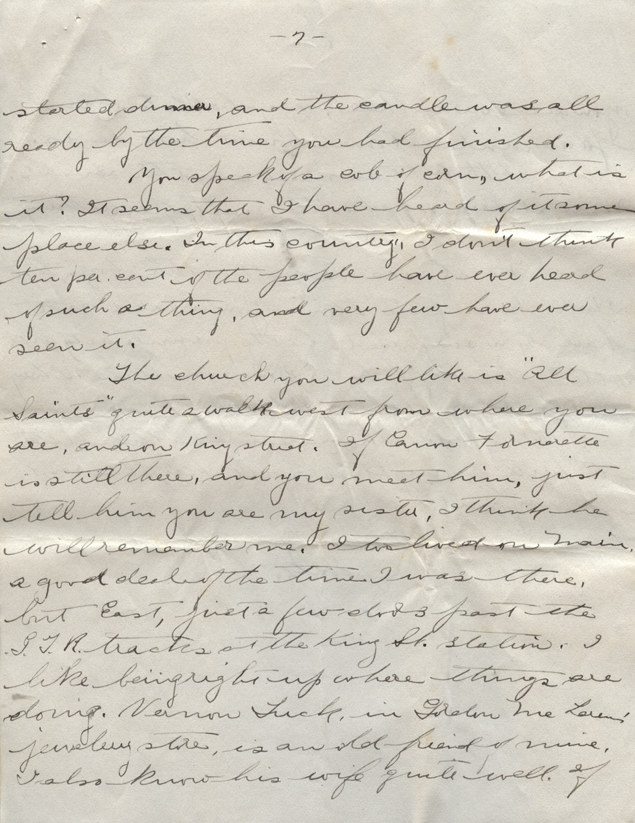 -7-
started dinner, and the candle was all
ready by the time you had finished.
You speak of a cob of corn, what is
it? It seems that I have head of it some
place else. In this country, I don't think
ten per. cent of the people have ever head
of such a thing, and very few have ever
seen it.
The church you will like is "All
Saints" quite a walk west from where you
are, and on King street. If Canon
is still there, and you meet him, just
tell him you are my sister, I think he
will remember me. I too lived on Main,
a good deal of the time I was there,
but East, just a few doors past the
tracks at the King St. station. I
like being right up where things are
doing. Vernon Tuck, in Gordon Mc Laren's
jewelery store, is an old friend of mine.
I also know his wife quite well. If